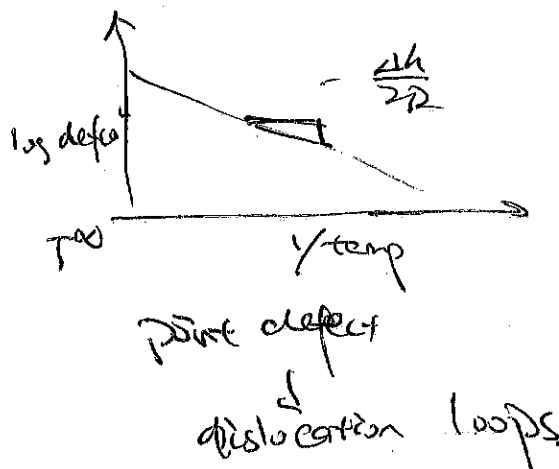 - Δh
2R
log defe
T∞
1/temp
point defect
↓
dislocation loops